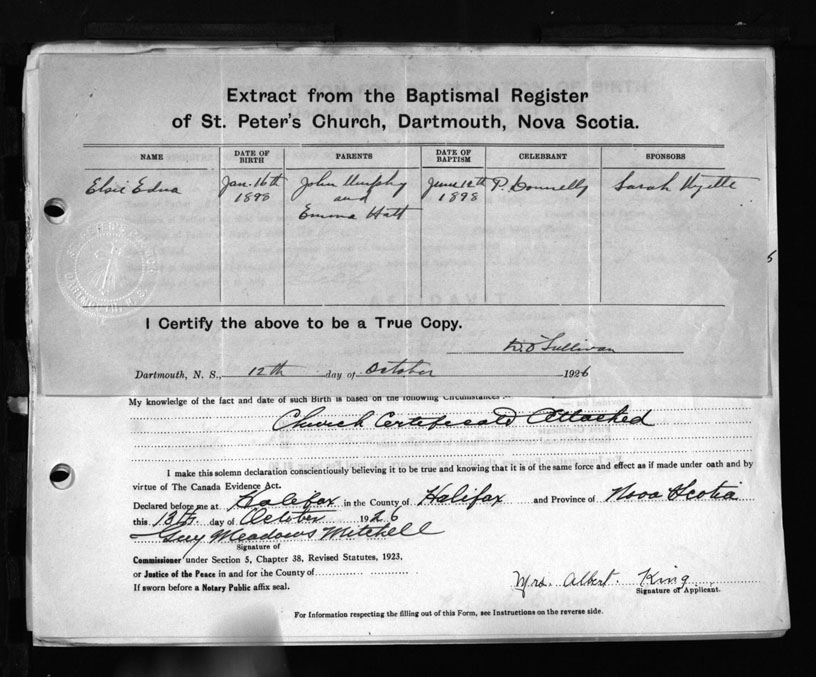 Extract from the Baptismal Register
of St. Peter's Church, Dartmouth, Nova Scotia.
NAME DATE OF BIRTH PARENTS DATE OF BAPTISM CELEBRANT SPONSORS
Elsie Edna Jan. 16th 1898 John Murphy and Emma Hatt June 12th 1898 P. Donnelly Sarah Myette
I Certify the above to be a True Copy.
D. O'Sullivan
Dartmouth, N. S., 12th day of October 1926
My knowledge of the fact and date of such Birth is based on the following Circumstances :—
Church Certificate Attached
I make this solemn declaration conscientiously believing it to be true and knowing that it is of the same force and effect as if made under oath and by
virtue of The Canada Evidence Act.
Declared before me at Halifax in the County of Halifax and Province of Nova Scotia
this 13th day of October 1926
Guy Meadows Mitchell
Signature of
Commissioner under Section 5, Chapter 38, Revised Statutes, 1923,
or Justice of the Peace in and for the County of
If sworn before a Notary Public affix seal.
Mrs. Albert King
Signature of Applicant.
For Information respecting the filling out of this Form, see Instructions on the reverse side.